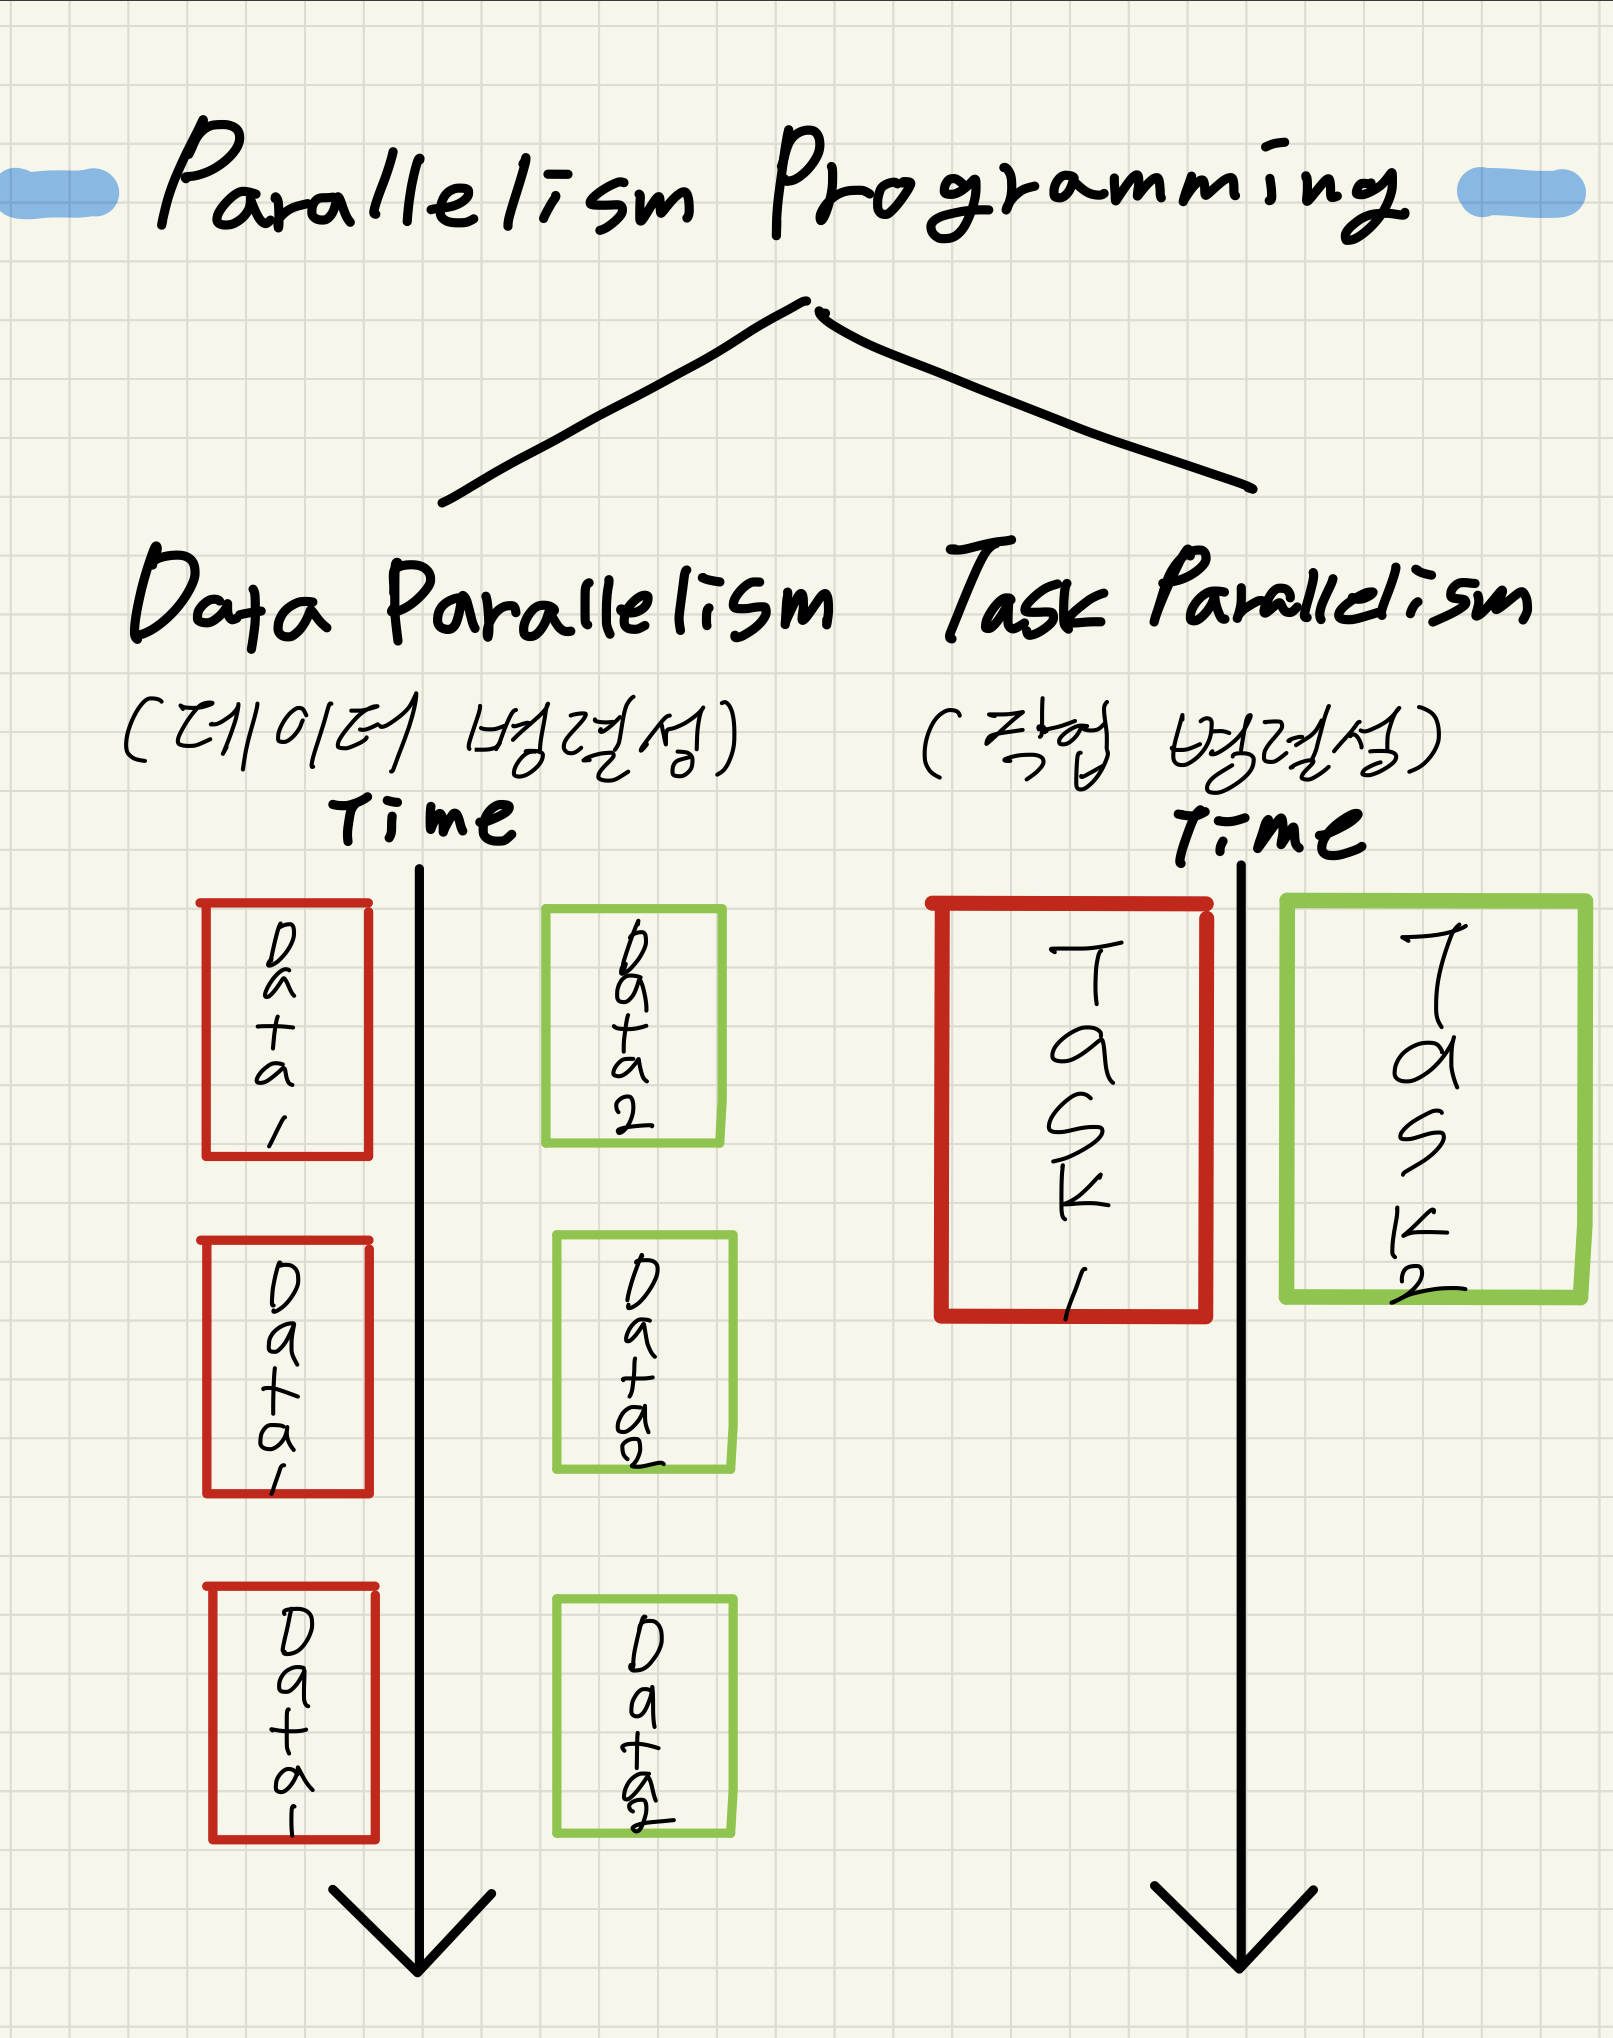 Parallelism Programming
Data Parallelism
(데이터 병렬성)
Time
Data 1
Data 2
Data 1
Data 2
Data 1
Data 2
Task Parallelism
(작업 병렬성)
Time
Task 1
Task 2